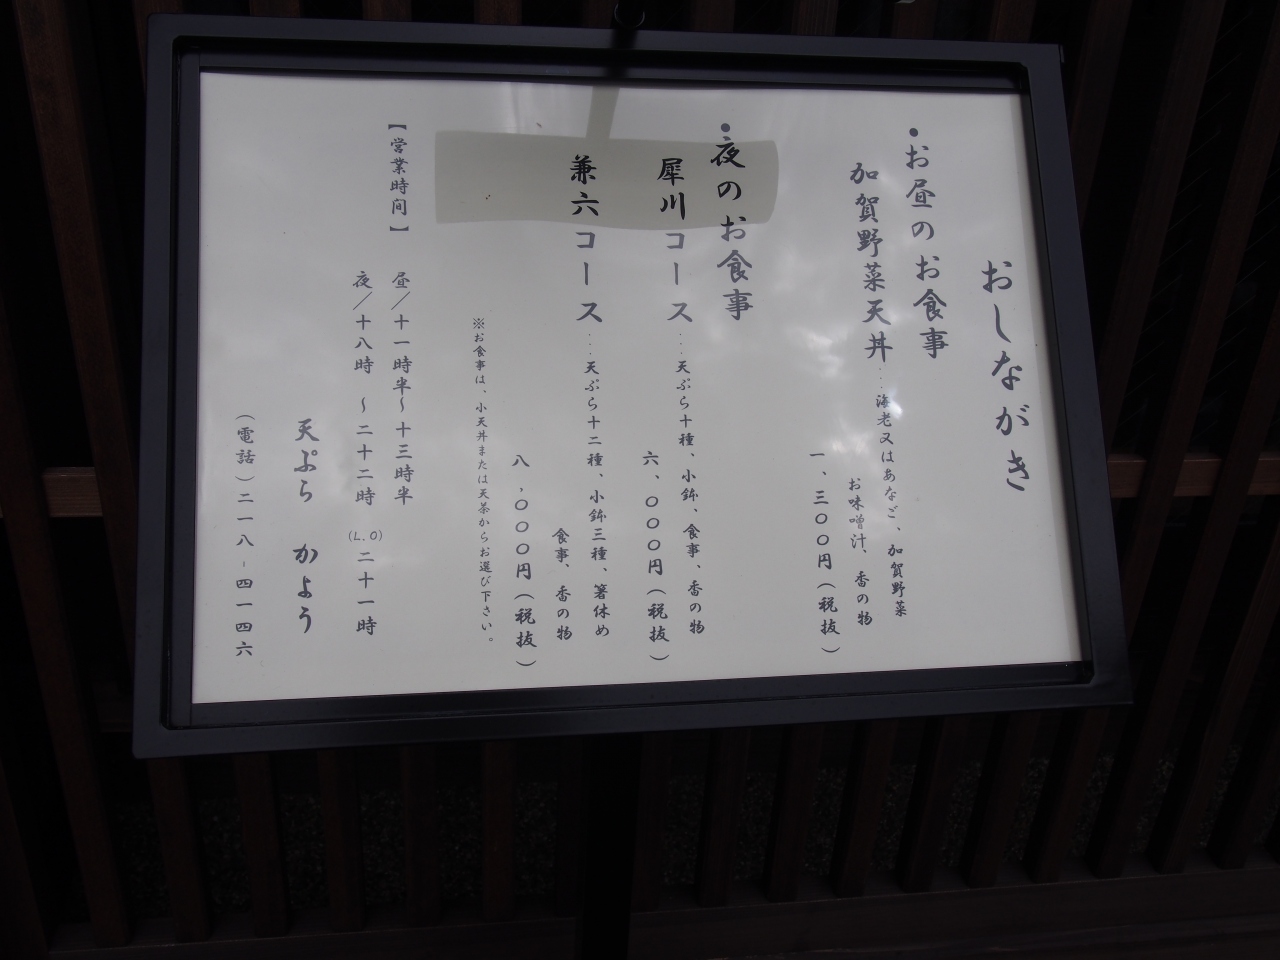 おしながき
●お昼のお食事
加賀野菜天丼‥‥海老又はあなご、加賀野菜
お味噌汁、香の物
一、三〇〇円（税抜）
●夜のお食事
犀川コース‥‥天ぷら十種、小鉢、食事、香の物
六、〇〇〇円（税抜）
兼六コース‥‥天ぷら十二種、小鉢三種、箸休め
食事、香の物
八,〇〇〇円（税抜）
※お食事は、小天丼または天茶からお選び下さい。
【営業時間】 昼／十一時半〜十三時半
夜／十八時 〜二十二時 (L.O)二十一時
天ぷら かよう
（電話）二一八-四一四六